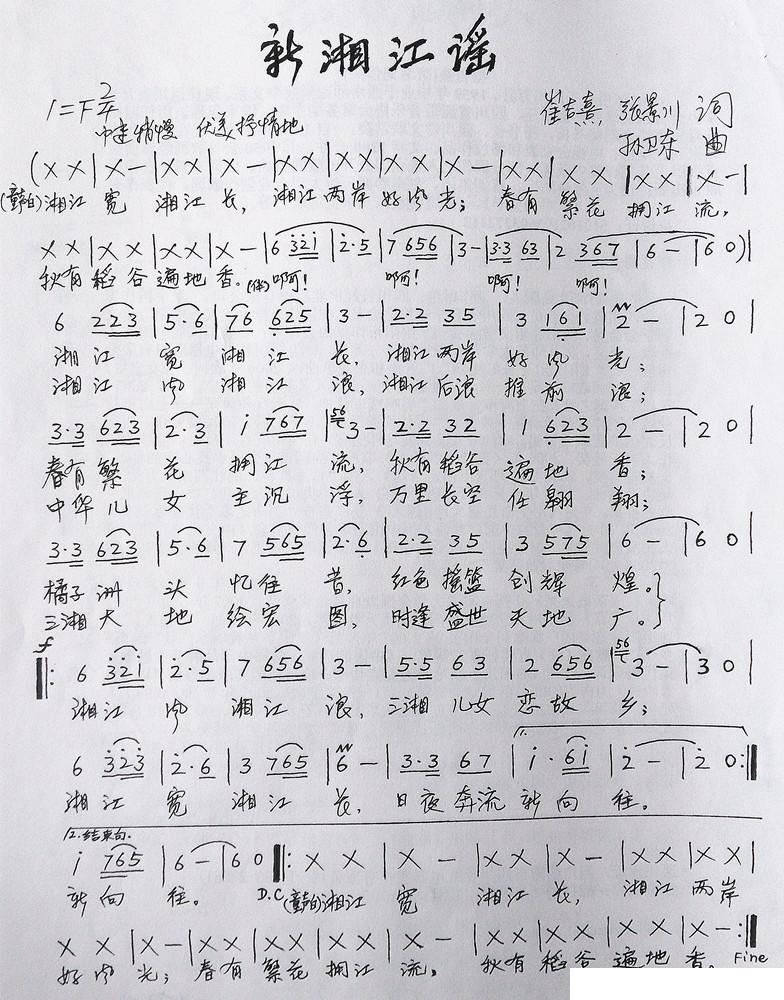 新湘江谣
1=F 2/4
中速稍慢 优美抒情地
崔吉熹、张景川 词
孙卫东 曲
(X X | X - | X X | X - | X X | X X | X X | X - | X X | X X | X X | X - |
(童白)湘江 宽 湘江 长, 湘江 两岸 好风 光; 春有 繁花 拥江 流,
X X | X X | X X | X - | 6 321 | 2·5 | 7 656 | 3 - | 3·3 63 | 2 367 | 6 - | 6 0) |
秋有 稻谷 遍地 香。(伴)啊! 啊! 啊! 啊!
6 223 | 5·6 | 76 625 | 3 - | 2·2 35 | 3 161 | 2 - | 2 0 |
湘 江 宽 湘 江 长, 湘江 两岸 好 风 光;
湘 江 风 湘 江 浪, 湘江 后浪 推 前 浪;
3·3 623 | 2·3 | i 767 | 56 3 - | 2·2 32 | 1 623 | 2 - | 2 0 |
春有 繁 花 拥江 流, 秋有 稻谷 遍地 香;
中华 儿 女 主沉 浮, 万里 长空 任翱 翔;
3·3 623 | 5·6 | 7 565 | 2·6 | 2·2 35 | 3 575 | 6 - | 6 0 |
橘子 洲 头 忆往 昔, 红色 摇篮 创辉 煌。}
三湘 大 地 绘宏 图, 时逢 盛世 天地 广。}
f
‖: 6 321 | 2·5 | 7 656 | 3 - | 5·5 63 | 2 656 | 56 3 - | 3 0 |
湘江 风 湘江 浪, 三湘 儿女 恋故 乡;
6 323 | 2·6 | 3 765 | 6 - | 3·3 67 | i·6i | 2 - | 2 0 :‖
湘江 宽 湘江 长, 日夜 奔流 新向 往。
2.结束句.
i 765 | 6 - | 6 0 ‖: X X | X - | X X | X - | X X | X X |
新向 往。 D.C (童白)湘江 宽 湘江 长, 湘江 两岸
X X | X - | X X | X X | X X | X - | X X | X X | X X | X - :‖
好风 光; 春有 繁花 拥江 流, 秋有 稻谷 遍地 香。 Fine